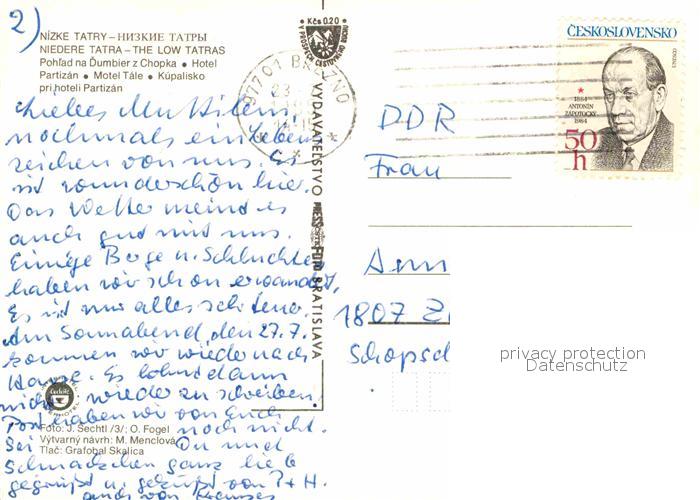 2)
NÍZKE TATRY – НИЗКИЕ ТАТРЫ
NIEDERE TATRA – THE LOW TATRAS
Pohľad na Ďumbier z Chopka • Hotel
Partizán • Motel Tále • Kúpalisko
pri hoteli Partizán
Liebes
nochmals ein Lebens
zeichen von uns. Es
ist wunderschön hier.
Das Wetter meint es
auch gut mit uns.
Einige Berge u. Schluchten
haben wir schon erwandert.
Es ist nur alles sehr teuer.
Am Sonnabend, den 27.7.
kommen wir wieder nach
Hause. Es lohnt dann
nicht wieder zu schreiben.
Post haben wir von Euch
noch nicht.
Sei Du und
Schnäschen ganz lieb
gegrüßt u. geküßt von P + H.
auch von
Foto: J. Šechtl /3/; O. Fogel
Výtvarný návrh: M. Menclová
Tlač: Grafobal Skalica
Kčs 0,20
VYDAVATEĽSTVO PRESSFOTO BRATISLAVA
977 01 BREZNO
23
ČESKOSLOVENSKO
1884
ANTONÍN
ZÁPOTOCKÝ
1984
50
h
DDR
Frau
Ann
1807 Z
Schopsd
privacy protection
Datenschutz